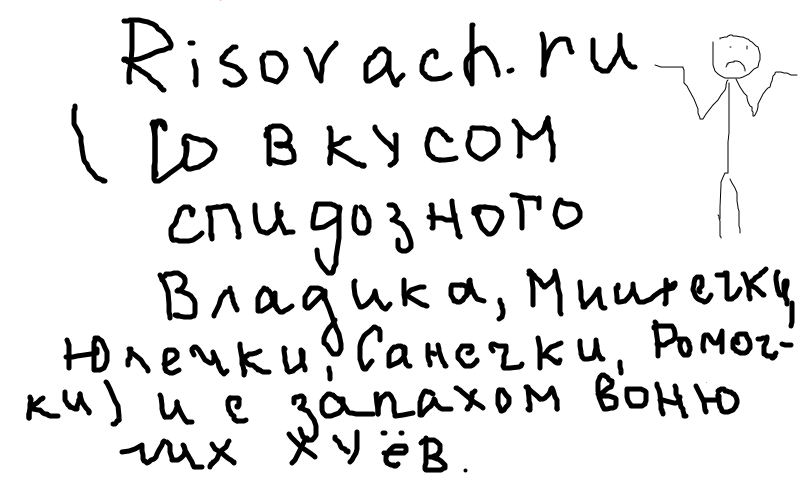 Risovach.ru
(Со вкусом
спидозного
Владика, Мишечки,
Юлечки, Санечки, Ромоч-
ки) и с запахом воню
чих хуёв.